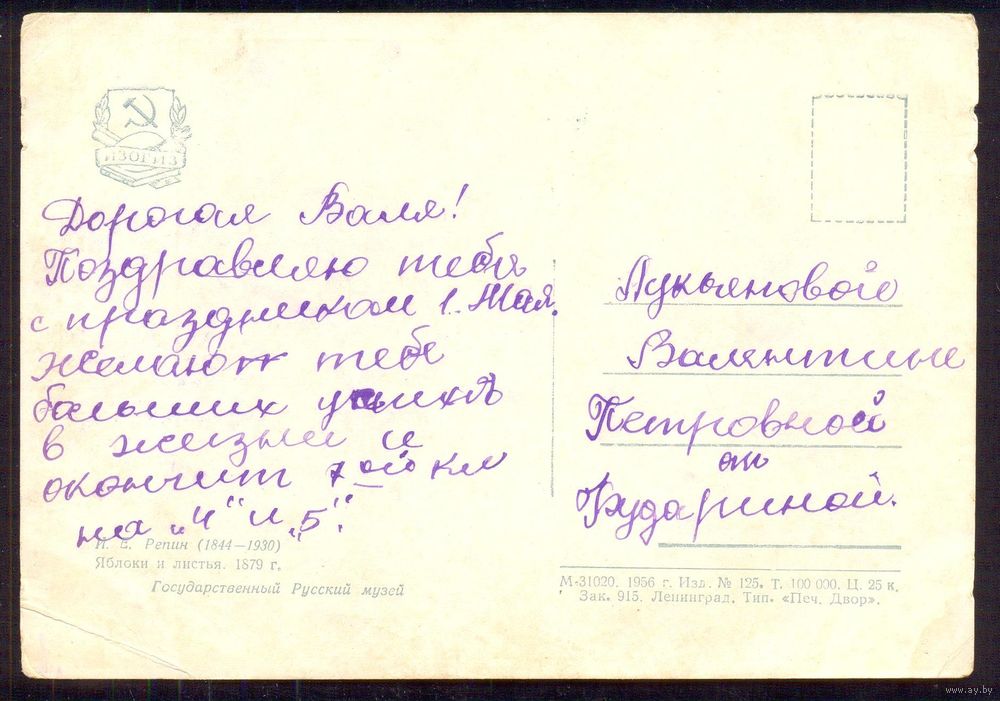 ИЗОГИЗ
Дорогая Валя!
Поздравляю тебя
с праздником 1. Мая.
Желаю тебе
больших успихв
в жизни и
окончит 7ой кл
на „4" и „5".
И. Е. Репин (1844—1930)
Яблоки и листья. 1879 г.
Государственный Русский музей
Лукьяновой
Валентине
Петровной
от
Фудариной.
М-31020. 1956 г. Изд. № 125. Т. 100 000. Ц. 25 к.
Зак. 915. Ленинград. Тип. «Печ. Двор».
www.ay.by